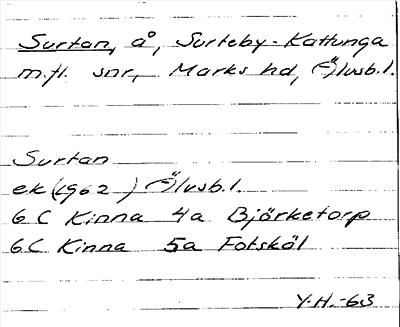 Surtan, å, Surteby-Kattunga
m.fl. snr, Marks hd, Älvsb.l.
Surtan
ek (1962) Älvsb.l.
6 C Kinna 4a Björketorp
6 C Kinna 5a Fotskäl
Y.H.-63